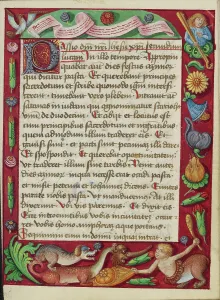 Passio dni nri ihesu xpi secundum
lucam In illo tempore Appropin
quabat aut dies festus azimor
qui dicitur pasca Et querebant principes
sacerdotum et scribe quomodo ihm interfi
cerent timebant vero plebem Intravit
sathanas in iudam qui cognominatur scarioth
unum de duodecim Et abiit et locutus
est cum principibus sacerdotum et magistratibus
quem admodum illum traderet eis Et
gavisi sunt et pacti sunt pecuniam illi dare
Et spopondit Et querebat oportunitatem
ut traderet illum sine turbis Venit aut
dies azimor in qua necesse erat occidi pasca
et misit petrum et Johannem dicens Euntes
parate nobis pasca ut manducemus At illi
dixerunt Ubi vis paremus Et dixit eis
Ecce introeuntibus vobis in civitatem occur
ret vobis homo amphoram aque portans
Sequimini eum in domum in quam intrat et